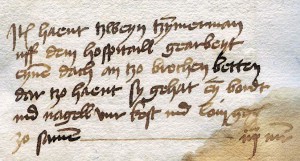 It(em) haent tzweyn tzymerman
uff dem hospitaill gearbeyt
eynen dach an tzo brochen betten
dar tzo haent sy gehat ey bordt
ind nagell vur kost ind loin
zo samen iiij